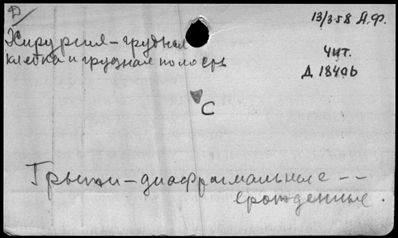 Д
13/358 А.Ф.
Хирургия-грудная
клетка и грудная полость
Чит.
Д 18406
С
Грыжи-диафрагмальные --
врожденные.